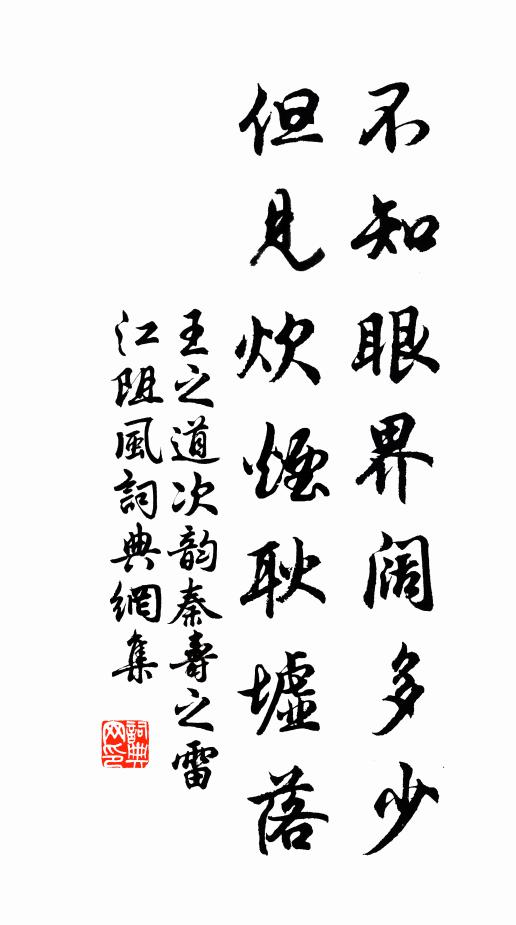 不知眼界阔多少
但見炊煙耿墟落
王之道次韵秦壽之雷
江阻風詞典網集
詞典
网印